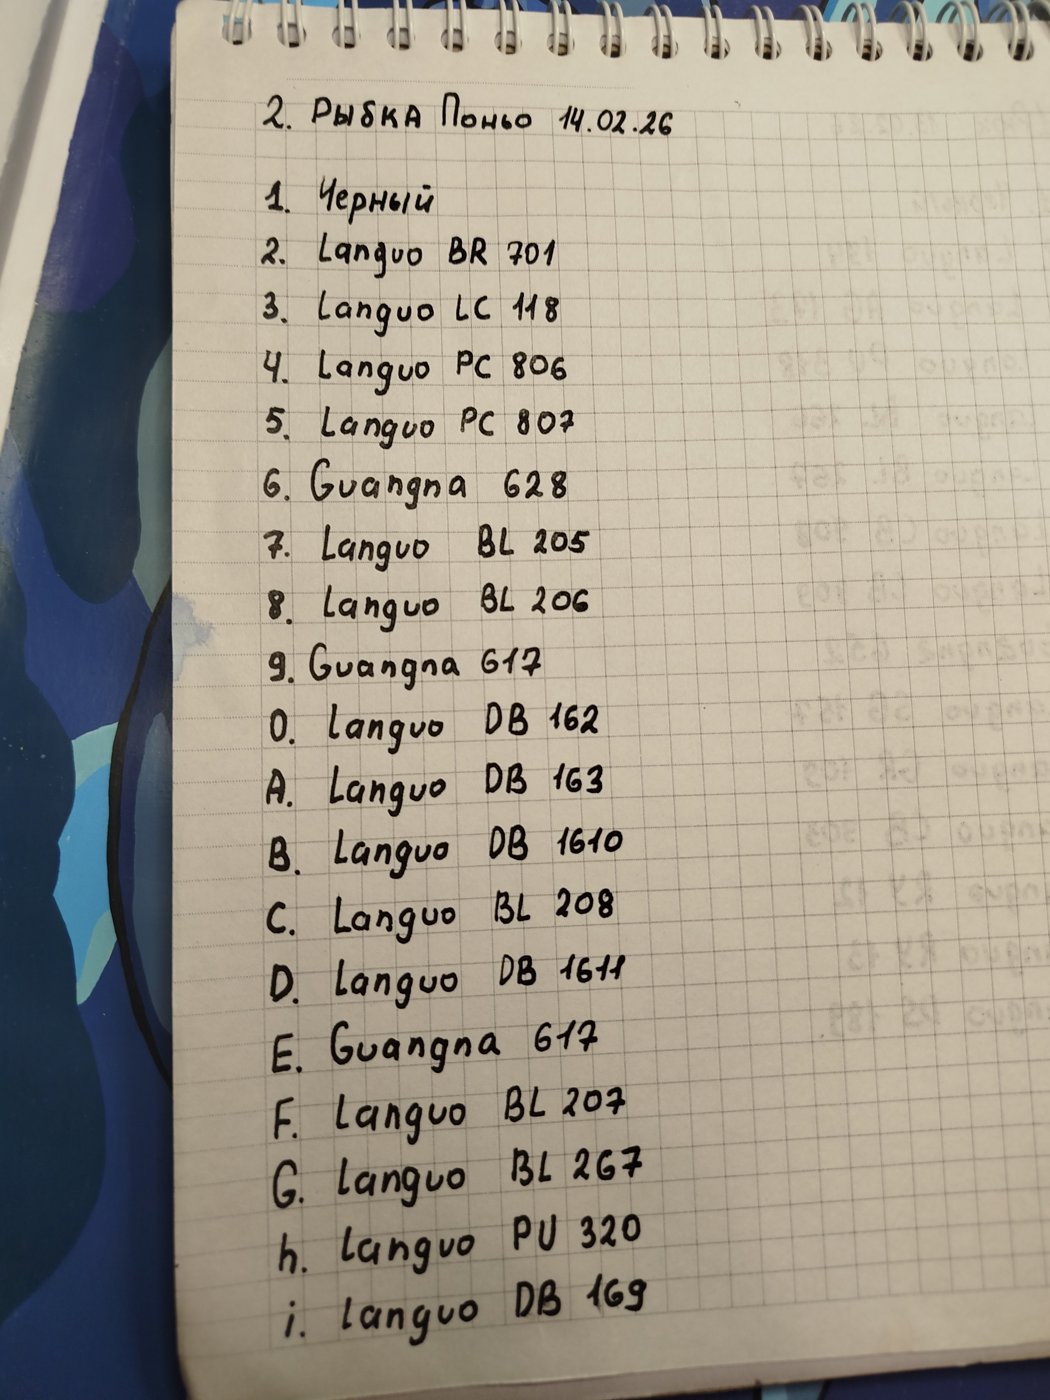 2. Рыбка Поньо 14.02.26
1. Черный
2. Languo BR 701
3. Languo LC 118
4. Languo PC 806
5. Languo PC 807
6. Guangna 628
7. Languo BL 205
8. Languo BL 206
9. Guangna 617
0. Languo DB 162
A. Languo DB 163
B. Languo DB 1610
C. Languo BL 208
D. Languo DB 1611
E. Guangna 617
F. Languo BL 207
G. Languo BL 267
h. Languo PU 320
i. Languo DB 169